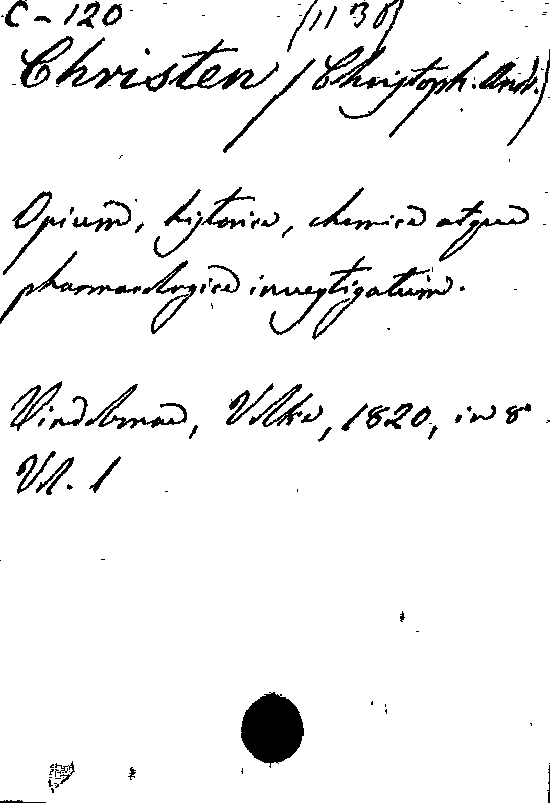 C-120 (1138)
Christen (Christoph. And.)
Opium, historice, chemice atque
pharmacologice investigatum.
Vindobonae, Volke, 1820, in 8°
Vol. 1